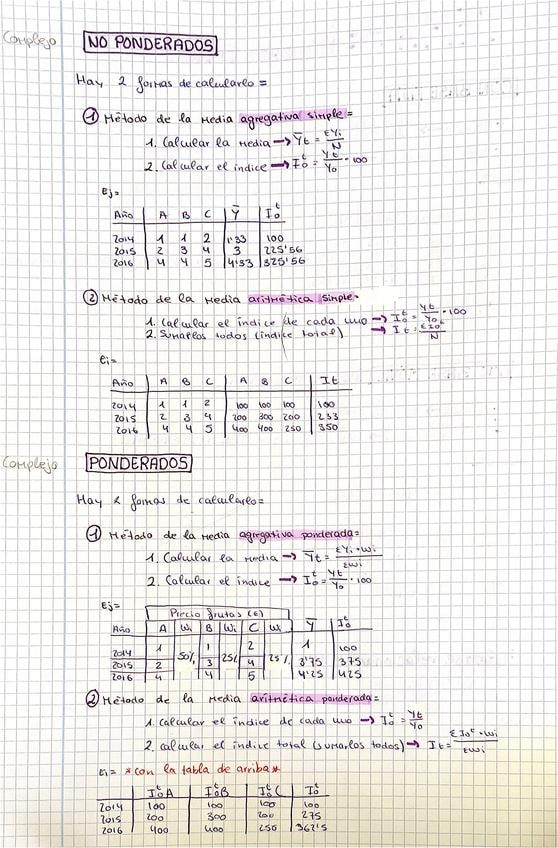 Complejo NO PONDERADOS
Hay 2 formas de calcularlo =
① Método de la Media agregativa simple =
1. Calcular la Media → Ȳt = ΣYi / N
2. Calcular el índice → I₀ᵗ = Yt / Y₀ · 100
Ej =
Año | A B C | Ȳ | I₀ᵗ
2014 | 1 1 2 | 1'33 | 100
2015 | 2 3 4 | 3 | 225'56
2016 | 4 4 5 | 4'33 | 325'56
② Método de la Media aritmética simple =
1. Calcular el índice de cada uno → I₀ᵗ = Yt / Y₀ · 100
2. Sumarlos todos (índice total) → It = ΣI₀ᵗ / N
Ej =
Año | A B C | A B C | It
2014 | 1 1 2 | 100 100 100 | 100
2015 | 2 3 4 | 200 300 200 | 233
2016 | 4 4 5 | 400 400 250 | 350
Complejo PONDERADOS
Hay 2 formas de calcularlo =
① Método de la Media agregativa ponderada =
1. Calcular la Media → Ȳt = ΣYi · wi / Σwi
2. Calcular el índice → I₀ᵗ = Yt / Y₀ · 100
Ej = Precio frutas (€)
Año | A | Wi | B | Wi | C | Wi | Ȳ | I₀ᵗ
2014 | 1 | 50% | 1 | 25% | 2 | 25% | 1 | 100
2015 | 2 | 3 | 4 | 3'75 | 375
2016 | 4 | 4 | 5 | 4'25 | 425
② Método de la Media aritmética ponderada =
1. Calcular el índice de cada uno → I₀ᵗ = Yt / Y₀
2. Calcular el índice total (sumarlos todos) → It = ΣI₀ᵗ · wi / Σwi
Ej = *con la tabla de arriba*
I₀ᵗA | I₀ᵗB | I₀ᵗC | I₀ᵗ
2014 | 100 | 100 | 100 | 100
2015 | 200 | 300 | 200 | 275
2016 | 400 | 400 | 250 | 362'5